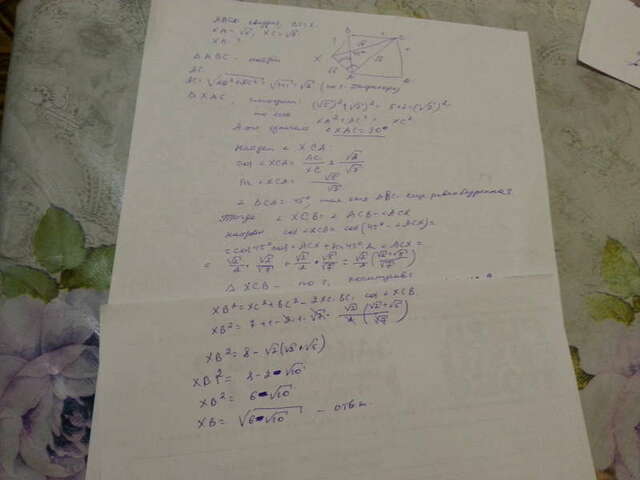 ABCD квадрат, BC=1.
XA = √5, XC = √7
XB - ?
B
C
X
A
D
Δ ABC - найдём
AC.
AC = √AB²+BC² = √1+1 = √2 (по т. Пифагора)
Δ XAC (√5)²+(√2)² = 5+2=(√7)²
то есть
XA²+AC² = XC²
А это значит ∠XAC = 90°
Найдём ∠ XCA:
cos ∠XCA = AC/XC = √2/√7
sin ∠XCA = √5/√7
∠ BCA = 45°, так как ABC
Тогда ∠ XCB = ∠ ACB - ∠ACX
Найдём cos ∠XCB = cos(45° - ∠ACX) =
= cos 45° cos ∠ACX + sin 45° sin ∠ACX =
= √2/2 · √2/√7 + √2/2 · √5/√7 = √2/2 (√2+√5/√7)
Δ XCB - по т. косинусов
XB² = XC² + BC² - 2XC·BC· cos ∠XCB.
XB² = 7+1-2·1·√7 · √2/2 (√2+√5/√7)
XB² = 8 - √2(√2+√5)
XB² = 8-2-√10
XB² = 6-√10
XB = √6-√10 - ответ.